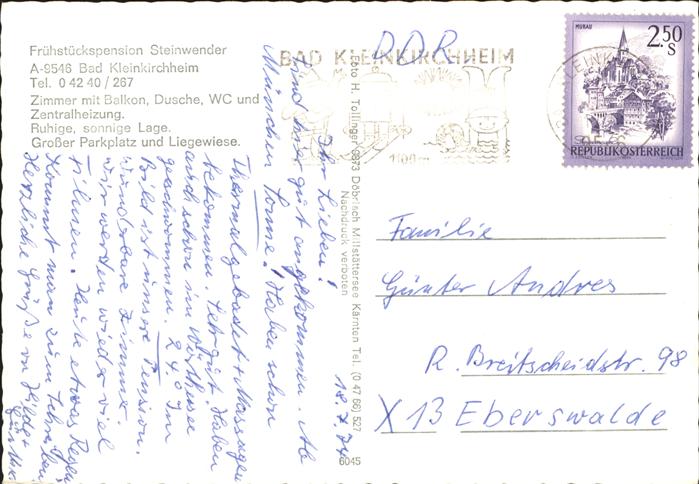 Frühstückspension Steinwender
A-9546 Bad Kleinkirchheim
Tel. 0 42 40 / 267
Zimmer mit Balkon, Dusche, WC und
Zentralheizung.
Ruhige, sonnige Lage.
Großer Parkplatz und Liegewiese.
BAD KLEINKIRCHHEIM
1100 m
DDR
MURAU
2.50
S
REPUBLIK ÖSTERREICH
Foto H. Tollinger 9873 Döbriach Millstättersee Kärnten Tel. (0 47 66) 527
Nachdruck verboten
6045
18.7.74
Ihr Lieben!
Sind hier gut angekommen. Ab
München Sonne! Haben schon
Thermalgebadet + Massagen
bekommen. Sehr gut. Haben
auch schon im Wörthersee
geschwommen. 24° Im
Bild ist unsere Pension.
Wunderbare Zimmer.
Wir werden wieder viel
Heute etwas Regen
kommt man zum Schreiben
Herzliche Grüße v. Hilde +
Günther
Familie
Günter Andres
R. Breitscheidstr. 98
X 13 Eberswalde